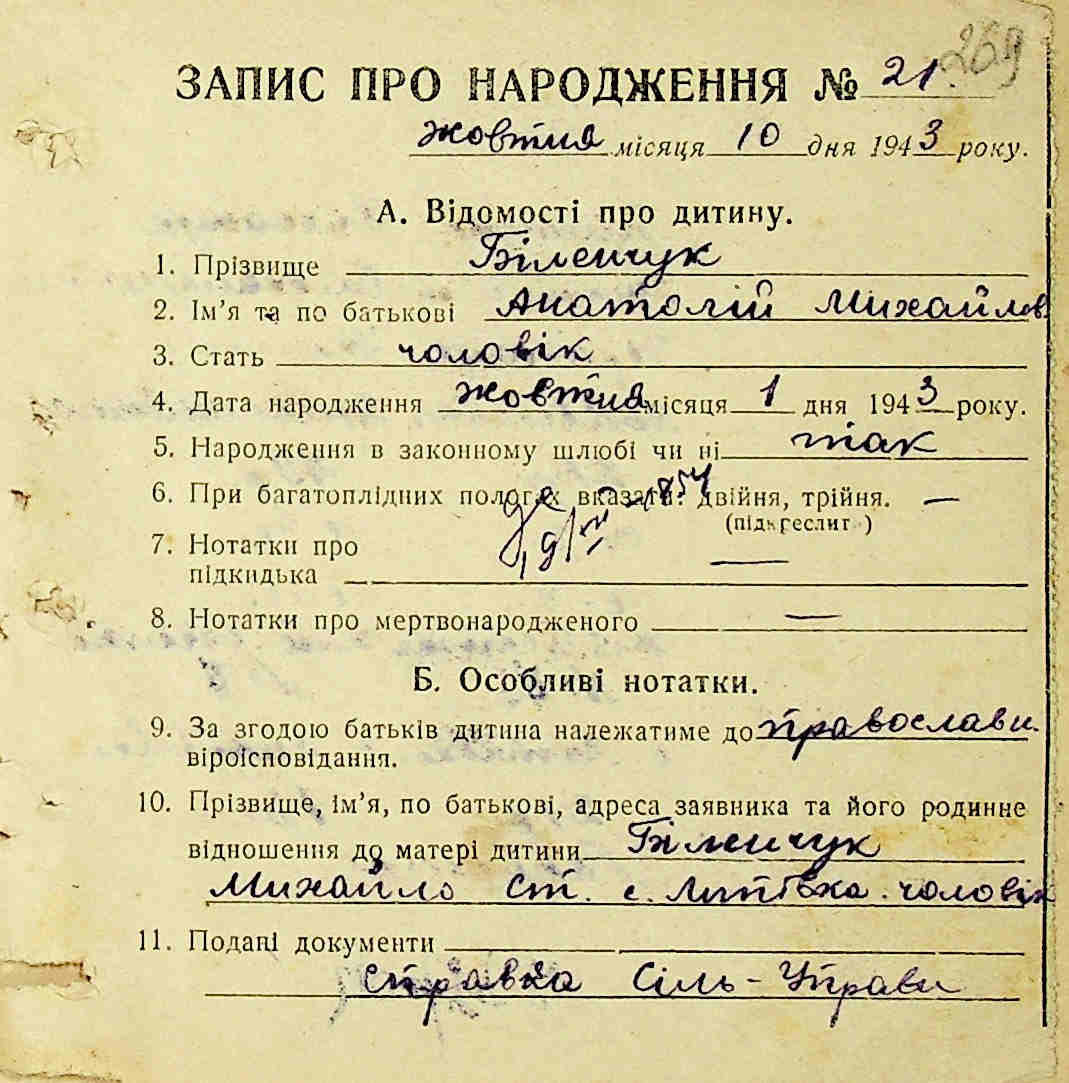 269
ЗАПИС ПРО НАРОДЖЕННЯ № 21
жовтня місяця 10 дня 1943 року.
А. Відомості про дитину.
1. Прізвище Біленчук
2. Ім’я та по батькові Анатолій Михайлов.
3. Стать чоловік
4. Дата народження жовтня місяця 1 дня 1943 року.
5. Народження в законному шлюбі чи ні так
6. При багатоплідних пологах вказати: двійня, трійня. —
(підкреслит )
7. Нотатки про
підкидька —
8. Нотатки про мертвонародженого —
Б. Особливі нотатки.
9. За згодою батьків дитина належатиме до православн.
віроісповідання.
10. Прізвище, ім’я, по батькові, адреса заявника та його родинне
відношення до матері дитини Біленчук
Михайло Ст. с. чоловік
11. Подані документи
справка Сіль-Управи